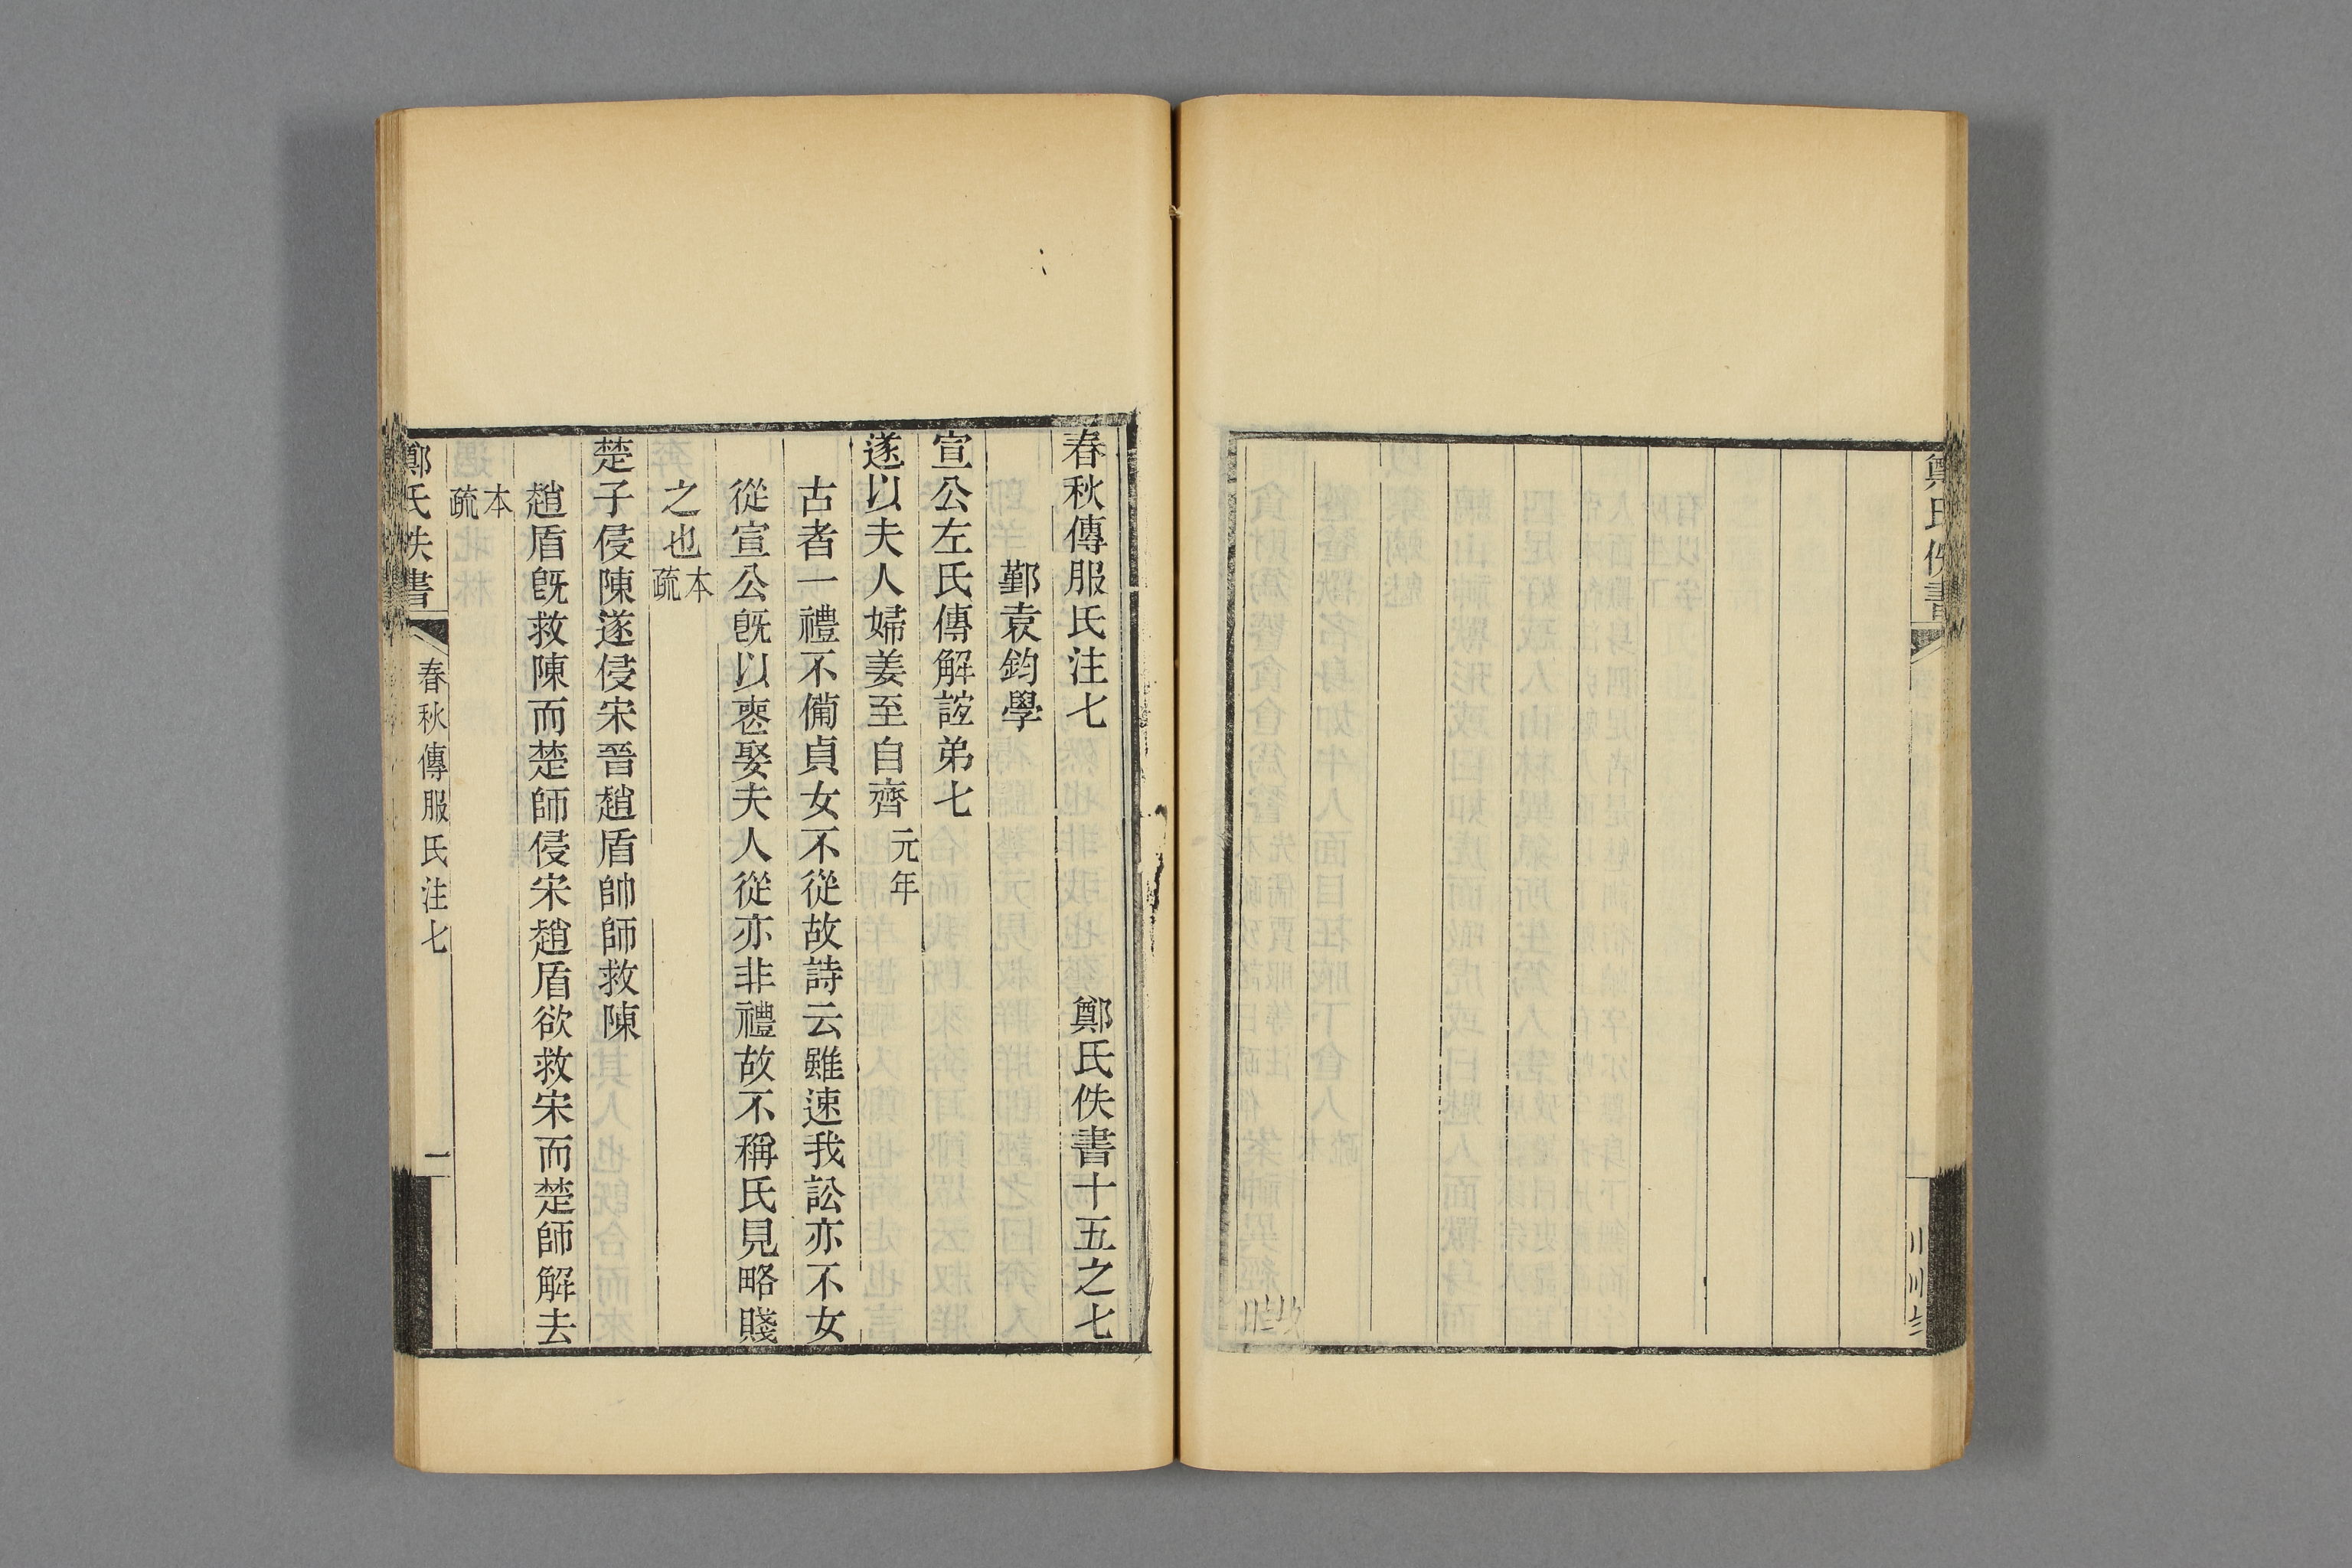 鄭氏佚書
春秋傳服氏注七 鄭氏佚書十五之七
鄞袁鈞學
宣公左氏傳解誼弟七
遂以夫人婦姜至自齊 元年
古者一禮不備貞女不從故詩云雖速我訟亦不女
從宣公旣以喪娶夫人從亦非禮故不稱氏見略賤
之也 本疏
楚子侵陳遂侵宋晉趙盾帥師救陳
趙盾旣救陳而楚師侵宋趙盾欲救宋而楚師解去
本疏
鄭氏佚書 春秋傳服氏注七 一